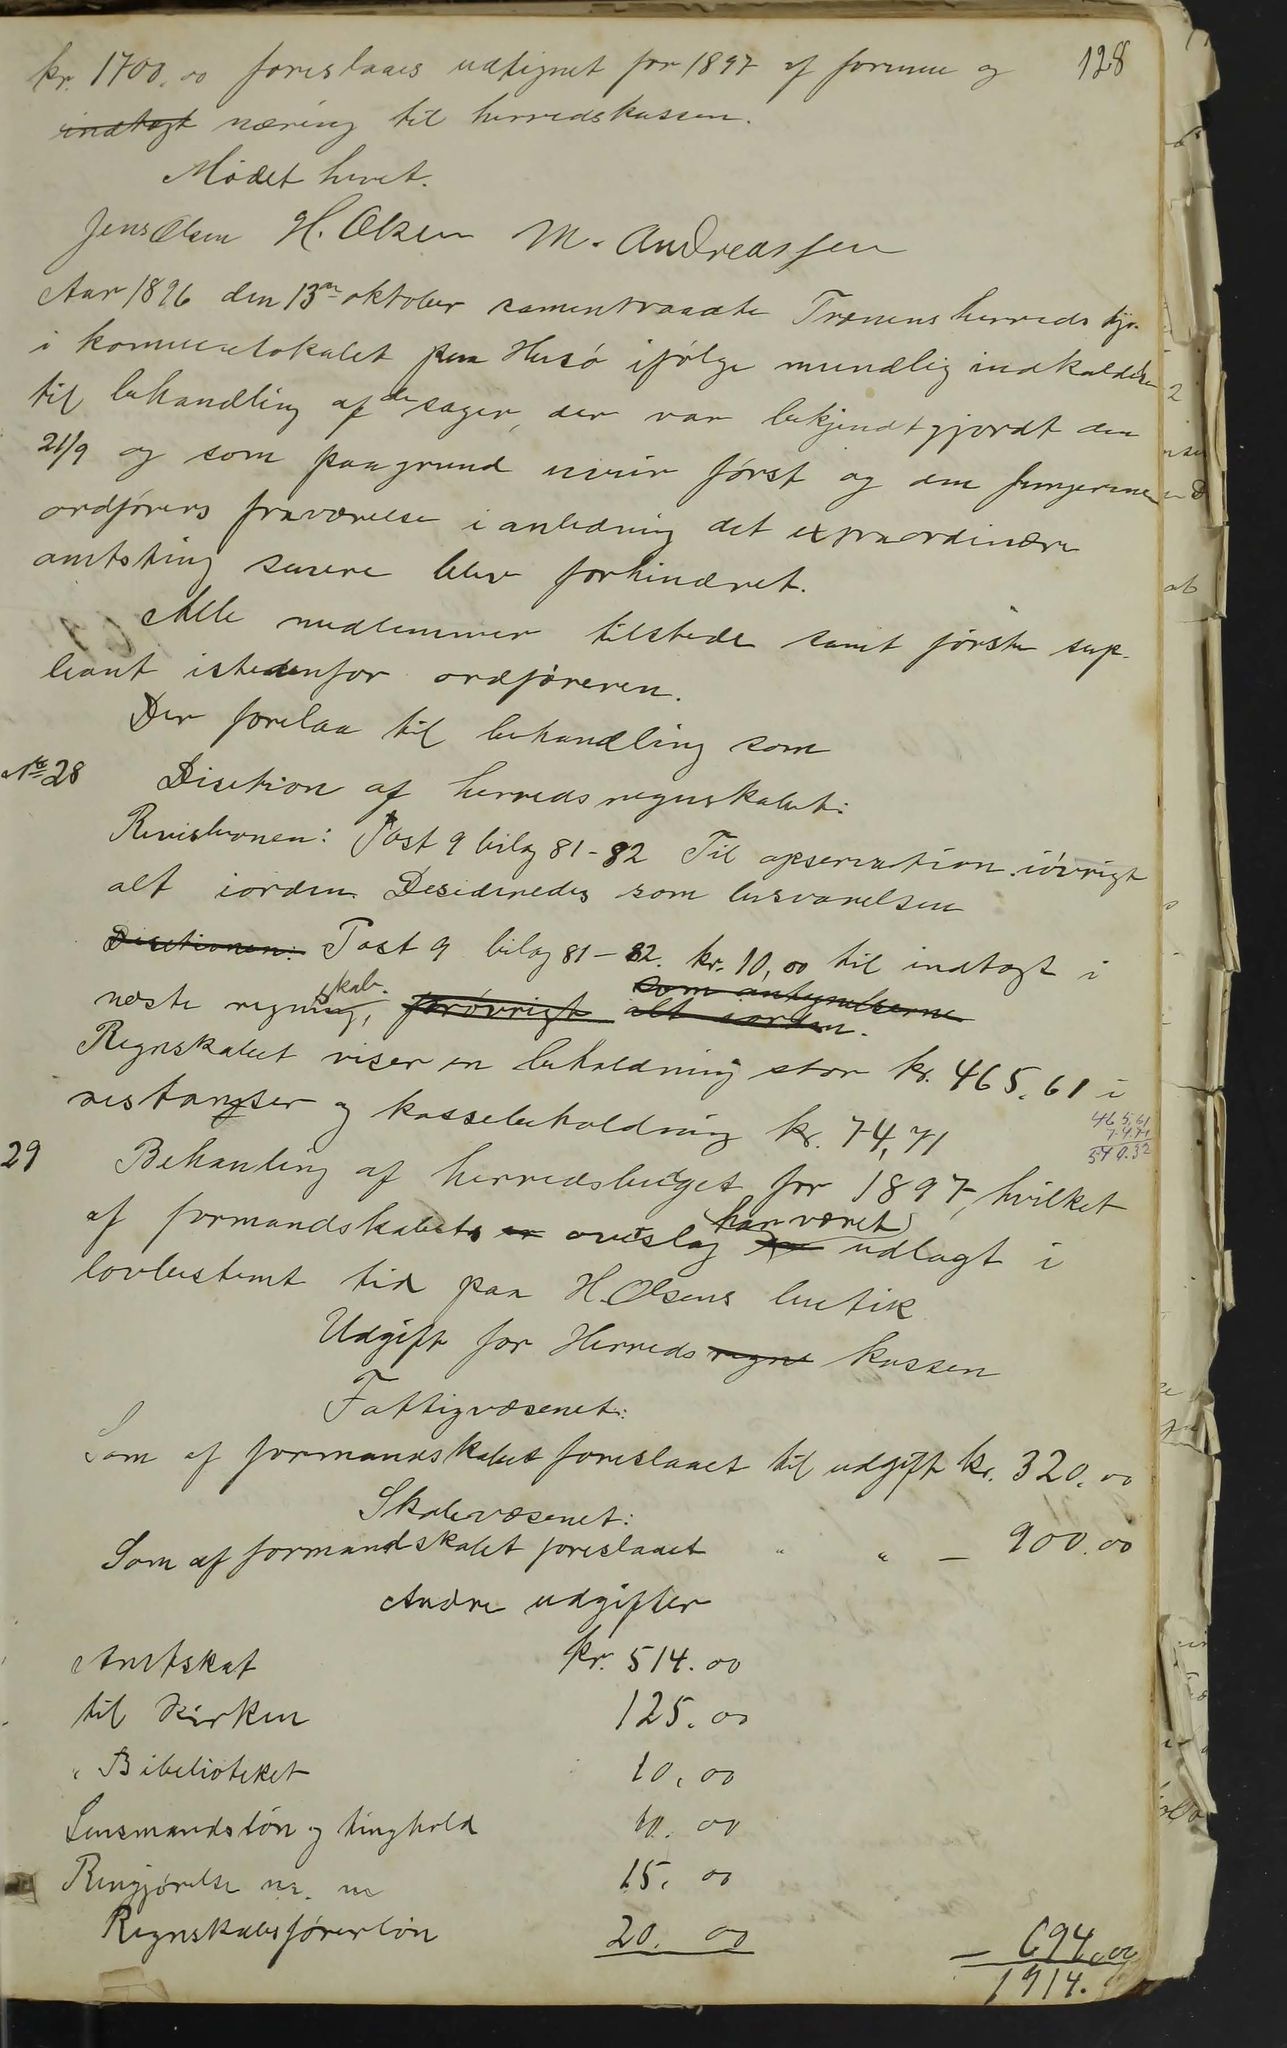 128
kr. 1700.00 foreslaaes udlignet for 1897 af formue og
indtægt næring til herredskassen.
Mødet hevet.
Jens Olsen H. Olsen M. Andreassen
Aar 1896 den 13de oktober samentraadte Trænens herreds
i kommunelokalet paa Husø ifølge mundlig indkaldelse
til behandling af de sager, der var bekjendtgjordt den
21/9 og som paa grund uveir først og den fungerende
ordførers fraværelse i anledning det expraordinære
amtsting senere blev forhindret.
Alle medlemmer tilstede samt første sup-
leant istedenfor ordføreren.
Der forelaa til behandling som
No 28 Disetion af herredsregnskabet:
Revisionen: Post 9 bilag 81-82 Til opservation. iøvrigt
alt iorden. Desideredes som besvarelsen
Disetionen: Post 9 bilag 81-82. kr. 10,00 til indtægt i
næste regning, skab. forøvrigt som antegnelserne alt iorden.
Regnskabet viser en beholdning stor kr. 465.61 i
restanser og kassebeholdning kr. 74,71
465,61
74.71
540.32
29 Behanling af herredsbudget for 1897, hvilket
af formandskabets er overslag har været udlagt i
lovbestemt tid paa H. Olsens butik
Udgift for Herreds regns kassen
Fattigvæsenet:
Som af formandskabet foreslaaet til udgift kr. 320.00
Skolevæsenet:
Som af formandskabet foreslaaet " " — 900.00
Andre udgifter
Amtskat kr. 514.00
til Kirken 125.00
" Bibelioteket 10.00
Lensmandsløn og tinghold 10.00
Rengjørelse m. m 15.00
Regnskabsførerløn 20.00 — 694.00
1914.